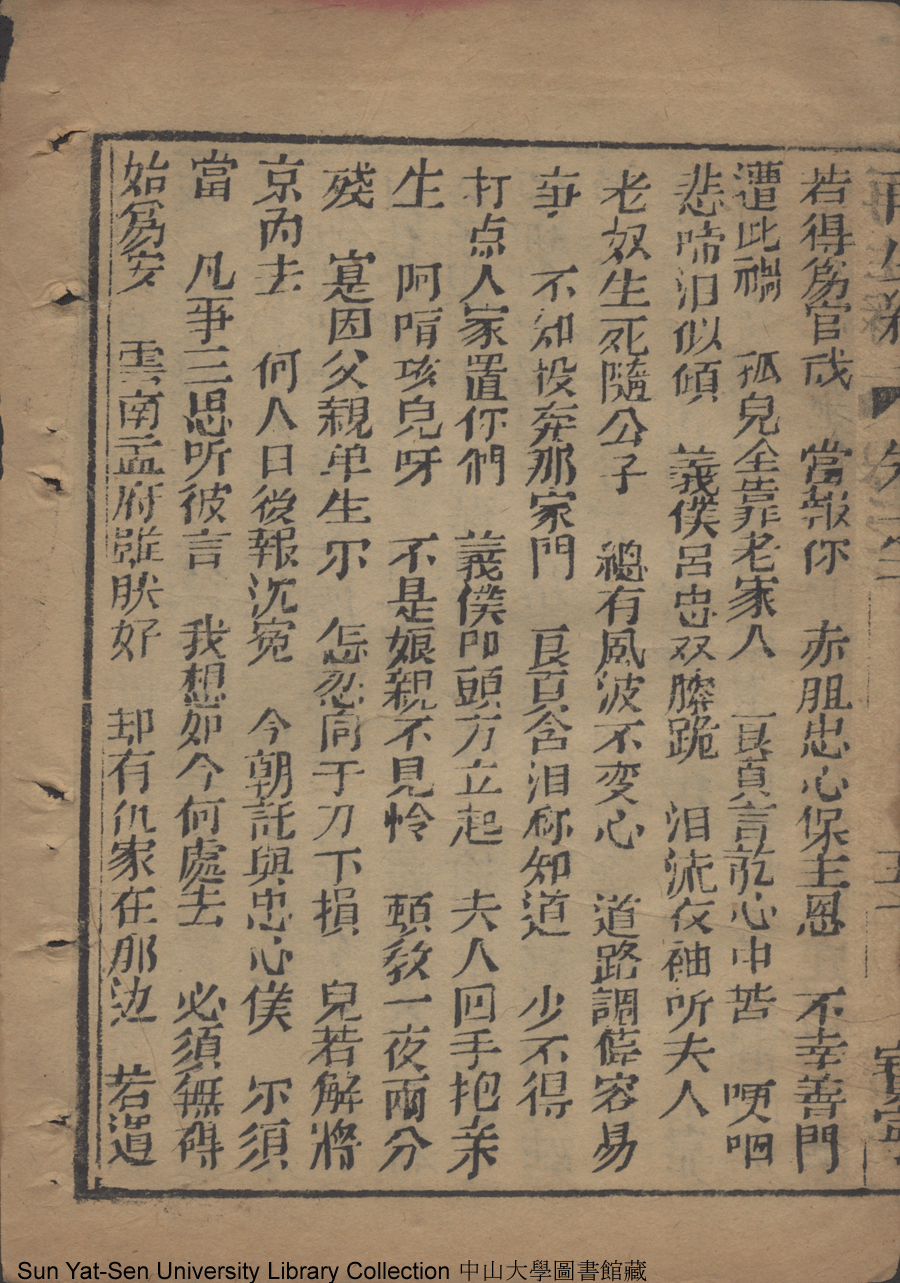 若得為官成　當報你　赤胆忠心保主恩　不幸善門
遭此禍　孤兒全靠老家人　員員言乾心中苦　哽咽
悲啼泪似傾　義僕呂忠双膝跪　泪流衣袖听夫人
老奴生死隨公子　總有風波不变心　道路調停容易
事　不知投奔那家門　員員含泪称知道　少不得
打点人家置你們　義僕叩頭方立起　夫人回手抱亲
生　阿唷孩兒呀　不是娘親不見怜　頓教一夜兩分
殘　寔因父親单生尔　怎忍同于刀下損　兒若解將
京內去　何人日後報沉寃　今朝託與忠心僕　尔须
當　凡事三思听彼言　我想如今何處去　必須無碍
始為安　雲南孟府雖肰好　却有仇家在那边　若還
Sun Yat-Sen University Library Collection 中山大學圖書館藏